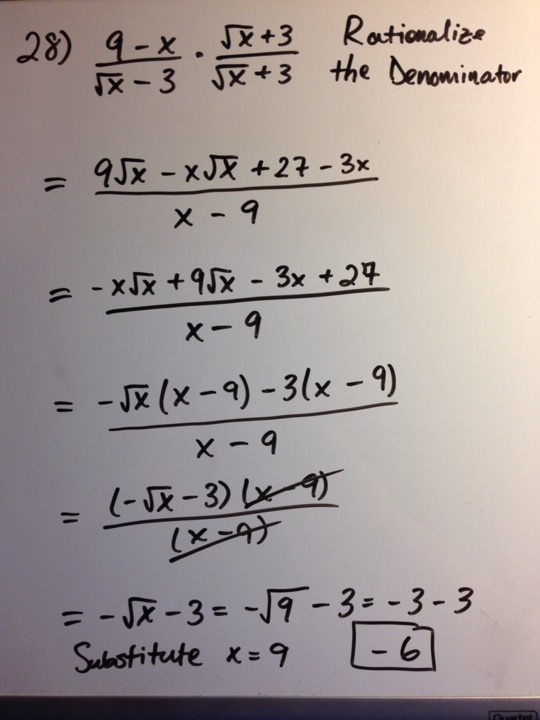 28) (9 - x)/(√x - 3) · (√x + 3)/(√x + 3) Rationalize
the Denominator
= (9√x - x√x + 27 - 3x)/(x - 9)
= (-x√x + 9√x - 3x + 27)/(x - 9)
= (-√x(x - 9) - 3(x - 9))/(x - 9)
= ((-√x - 3)(x - 9))/((x - 9))
= -√x - 3 = -√9 - 3 = -3 - 3
Substitute x = 9 -6
Quartet